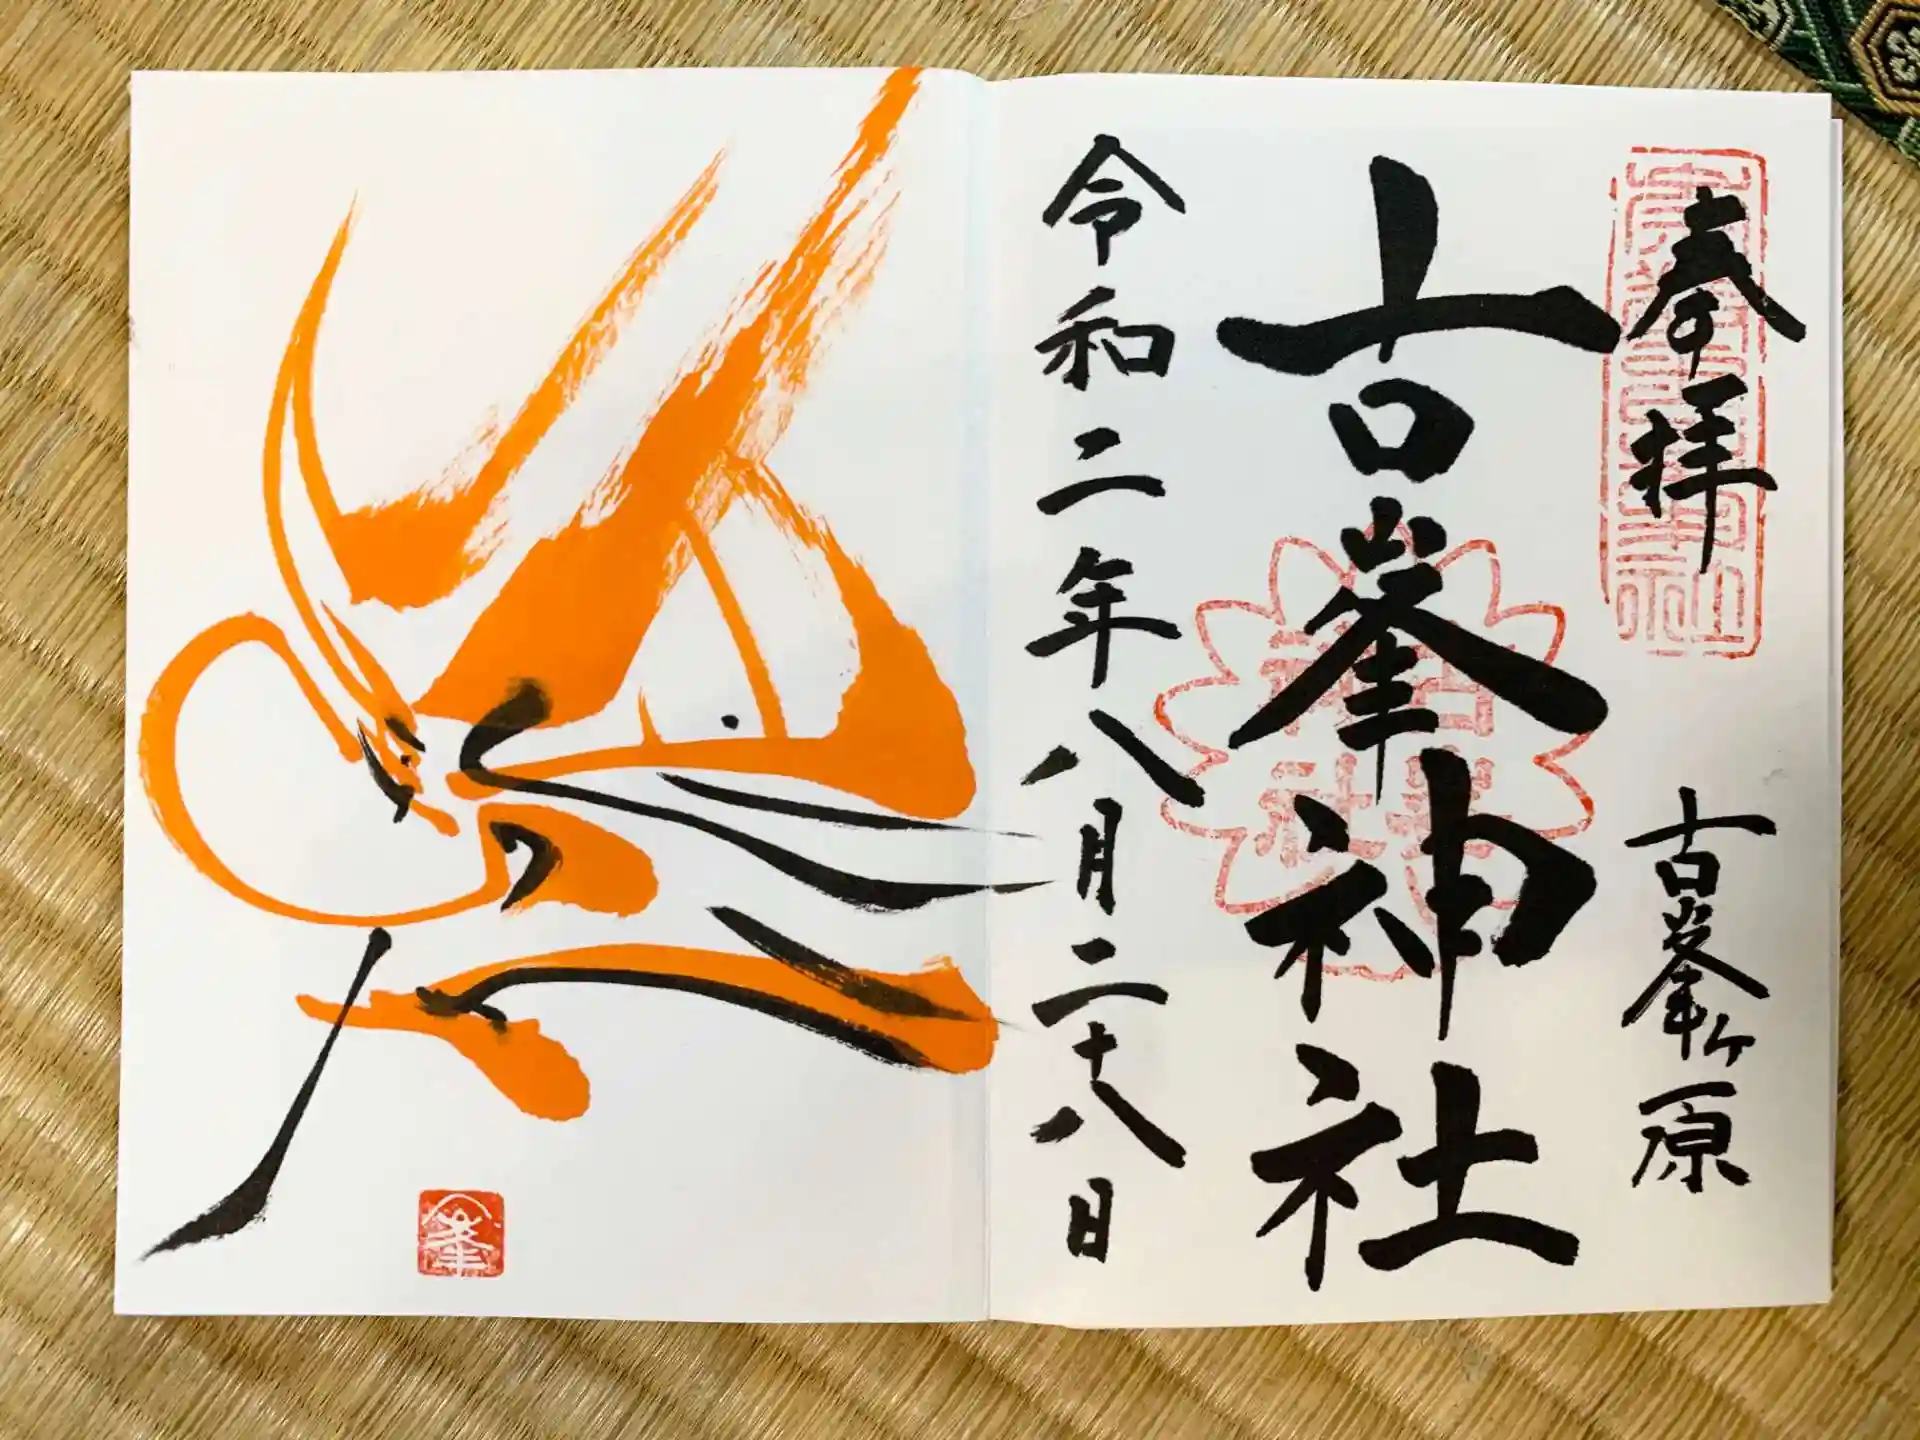 奉拝
古峯ヶ原
古峯神社
古峯神社
令和二年八月二十八日
峯